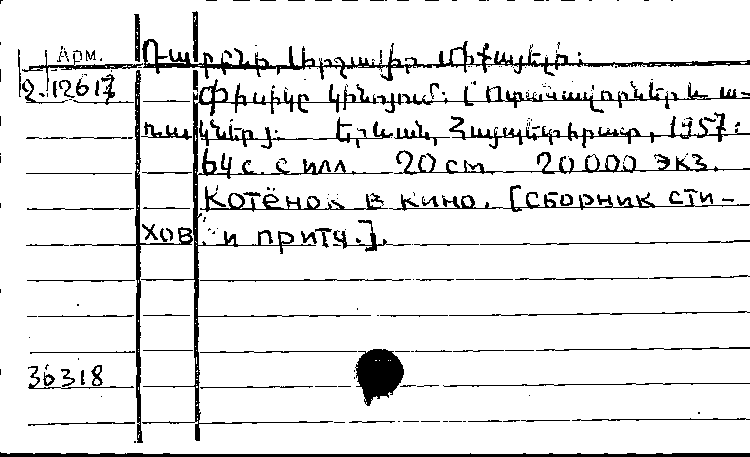 Арм.
2.12617
Դարբնի, Լիրշավիր Միքայելի:
Փիսիկը կինոյում: [Ոտանավորներ և ա-
ռակներ]: Երևան, Հայպետհրատ, 1957:
64 с. с илл. 20 см 20 000 экз.
Котёнок в кино. [сборник сти-
хов и притч.].
36318